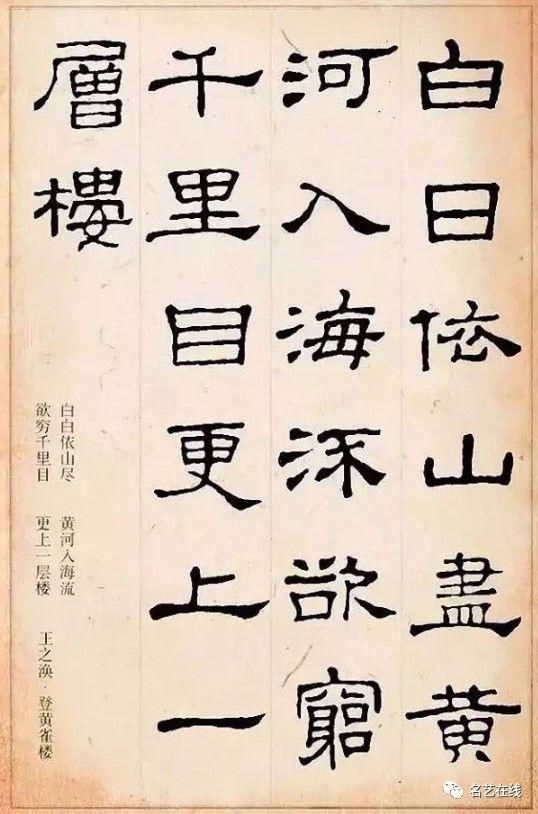 白日依山盡黄
河入海流欲窮
千里目更上一
層樓
白白依山尽 黄河入海流
欲穷千里目 更上一层楼
王之涣·登黄雀楼
名艺在线